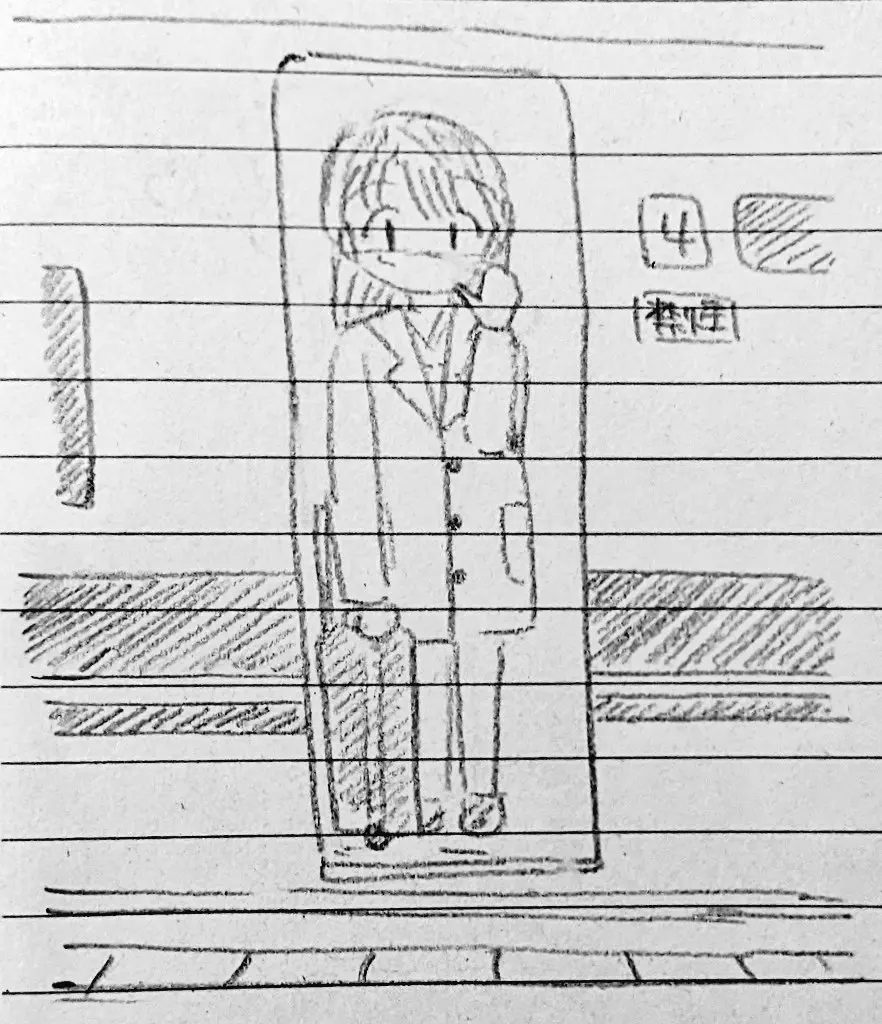 4
禁煙